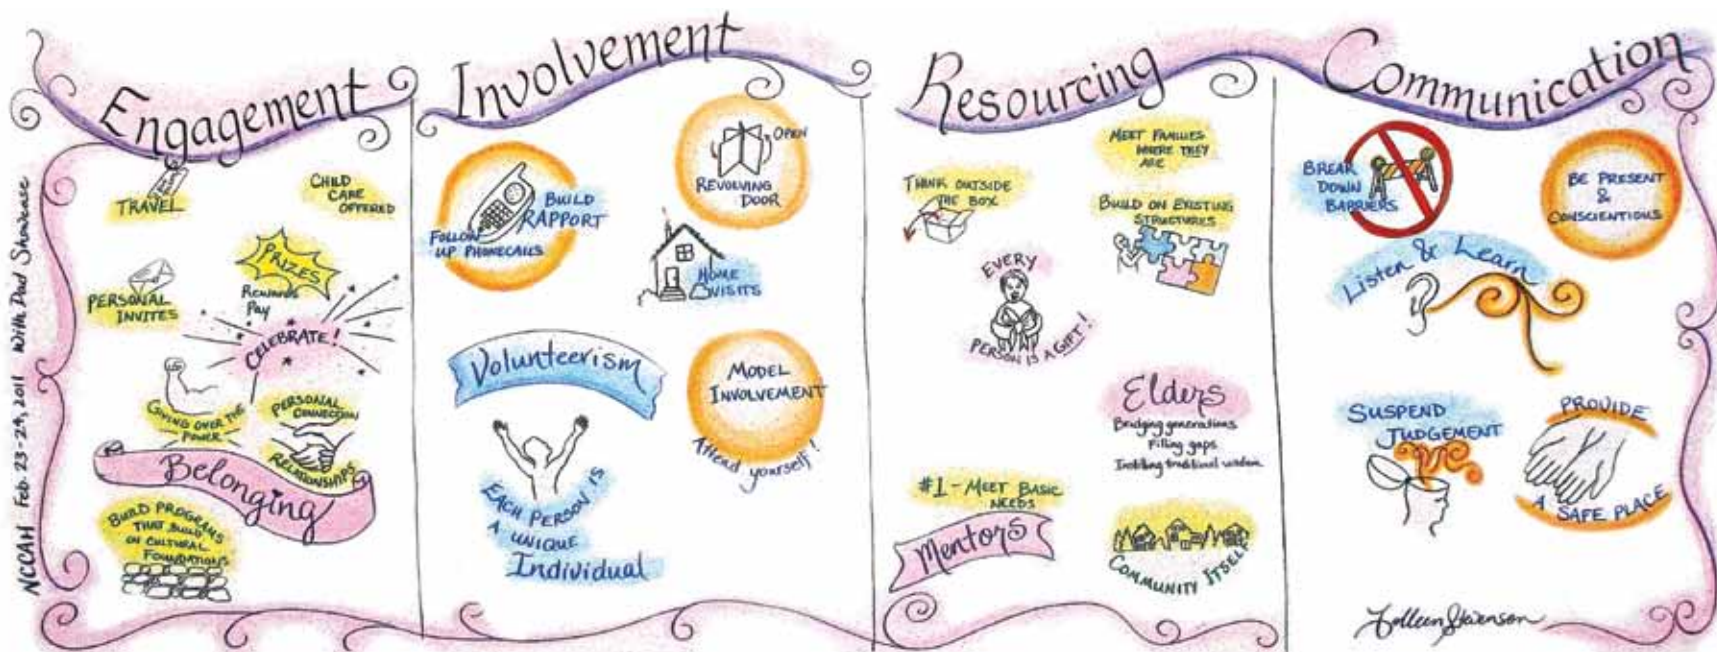 NCCAH Feb. 23-24, 2011 With Dad Showcase
Engagement
TRAVEL
CHILD
CARE
OFFERED
PERSONAL
INVITES
PRIZES
REWARDS
PAY
CELEBRATE!
GIVING OVER THE
POWER
PERSONAL
CONNECTION
RELATIONSHIPS
Belonging
BUILD PROGRAMS
THAT BUILD
ON CULTURAL
FOUNDATIONS
Involvement
BUILD
RAPPORT
FOLLOW
UP PHONECALLS
OPEN
REVOLVING
DOOR
HOME
VISITS
Volunteerism
MODEL
INVOLVEMENT
Attend yourself!
EACH PERSON IS
A UNIQUE
Individual
Resourcing
MEET FAMILIES
WHERE THEY
ARE
THINK OUTSIDE
THE BOX
BUILD ON EXISTING
STRUCTURES
EVERY
PERSON IS A GIFT!
Elders
Bridging generations
Filling gaps
Instilling traditional wisdom
#1-MEET BASIC
NEEDS
Mentors
COMMUNITY ITSELF
Communication
BREAK
DOWN
BARRIERS
BE PRESENT
&
CONSCIENTIOUS
Listen & Learn
SUSPEND
JUDGEMENT
PROVIDE
A SAFE PLACE
Colleen Stevenson